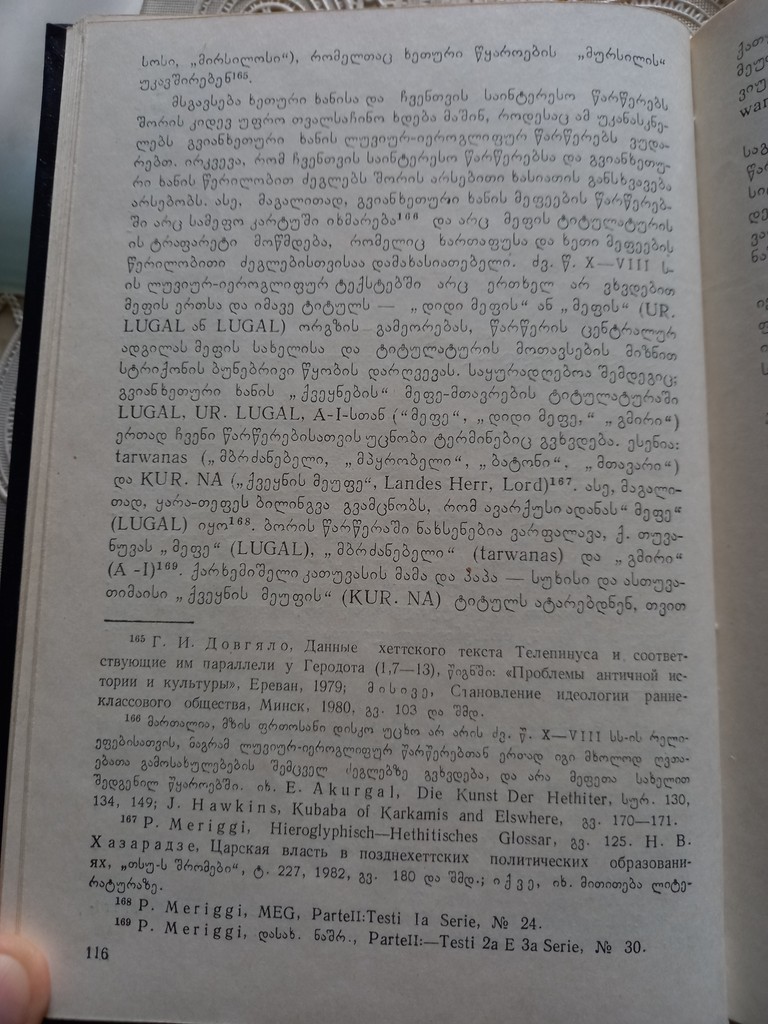 სოსი, „მირსილოსი“), რომელთაც ხეთური წყაროების „მურსილის“
უკავშირებენ¹⁶⁵.
მსგავსება ხეთური ხანისა და ჩვენთვის საინტერესო წარწერებს
შორის კიდევ უფრო თვალსაჩინო ხდება მაშინ, როდესაც ამ უკანასკნე-
ლებს გვიანხეთური ხანის ლუვიურ-იეროგლიფურ წარწერებს ვუდა-
რებთ. ირკვევა, რომ ჩვენთვის საინტერესო წარწერებსა და გვიანხეთუ-
რი ხანის წერილობით ძეგლებს შორის არსებითი ხასიათის განსხვავება
არსებობს. ასე, მაგალითად, გვიანხეთური ხანის მეფეების წარწერებ-
ში არც სამეფო კარტუში იხმარება¹⁶⁶ და არც მეფის ტიტულატურის
ის ტრაფარეტი მოწმდება, რომელიც ხართაფუსა და ხეთი მეფეების
წერილობითი ძეგლებისთვისაა დამახასიათებელი. ძვ. წ. X—VIII ს-
ის ლუვიურ-იეროგლიფურ ტექსტებში არც ერთხელ არ ვხვდებით
მეფის ერთსა და იმავე ტიტულს — „დიდი მეფის“ ან „მეფის“ (UR.
LUGAL ან LUGAL) ორგზის გამეორებას, წარწერის ცენტრალურ
ადგილას მეფის სახელისა და ტიტულატურის მოთავსების მიზნით
სტრიქონის ბუნებრივი წყობის დარღვევას. საყურადღებოა შემდეგიც;
გვიანხეთური ხანის „ქვეყნების“ მეფე-მთავრების ტიტულატურაში
LUGAL, UR. LUGAL, A-I-სთან (“მეფე“, „დიდი მეფე,“ „გმირი“)
ერთად ჩვენი წარწერებისათვის უცნობი ტერმინებიც გვხვდება. ესენია:
tarwanas („მბრძანებელი, „მპყრობელი“, „ბატონი“, „მთავარი“)
და KUR. NA („ქვეყნის მეუფე“, Landes Herr, Lord)¹⁶⁷. ასე, მაგალი-
თად, ყარა-თეფეს ბილინგვა გვამცნობს, რომ ავარქუსი ადანას“ მეფე“
(LUGAL) იყო¹⁶⁸. ბორის წარწერაში ნახსენებია ვარფალავა, ქ. თუვა-
ნუვას „მეფე“ (LUGAL), „მბრძანებელი“ (tarwanas) და „გმირი“
(A -I)¹⁶⁹. ქარხემიშელი კათუვასის მამა და პაპა — სუხისი და ასთუვა-
თიმაისი „ქვეყნის მეუფის“ (KUR. NA) ტიტულს ატარებდნენ, თვით
¹⁶⁵ Г. И. Довгяло, Данные хеттского текста Телепинуса и соответ-
ствующие им параллели у Геродота (1,7—13), წიგნში: «Проблемы античной ис-
тории и культуры», Ереван, 1979; მისივე, Становление идеологии ранне-
классового общества, Минск, 1980, გვ. 103 და შმდ.
¹⁶⁶ მართალია, მზის ფრთოსანი დისკო უცხო არ არის ძვ. წ. X—VIII სს-ის რელი-
ეფებისათვის, მაგრამ ლუვიურ-იეროგლიფურ წარწერებთან ერთად იგი მხოლოდ ღვთა-
ებათა გამოსახულებების შემცველ ძეგლებზე გვხვდება, და არა მეფეთა სახელით
შედგენილ წყაროებში. იხ. E. Akurgal, Die Kunst Der Hethiter, სურ. 130,
134, 149; J. Hawkins, Kubaba of Karkamis and Elswhere, გვ. 170—171.
¹⁶⁷ P. Meriggi, Hieroglyphisch—Hethitisches Glossar, გვ. 125. Н. В.
Хазарадзе, Царская власть в позднехеттских политических образовани-
ях, „თსუ-ს შრომები“, ტ. 227, 1982, გვ. 180 და შმდ.; იქვე, იხ. მითითება ლიტე-
რატურაზე.
¹⁶⁸ P. Meriggi, MEG, ParteII:Testi Ia Serie, № 24.
¹⁶⁹ P. Meriggi, დასახ. ნაშრ., ParteII:—Testi 2a E 3a Serie, № 30.
116